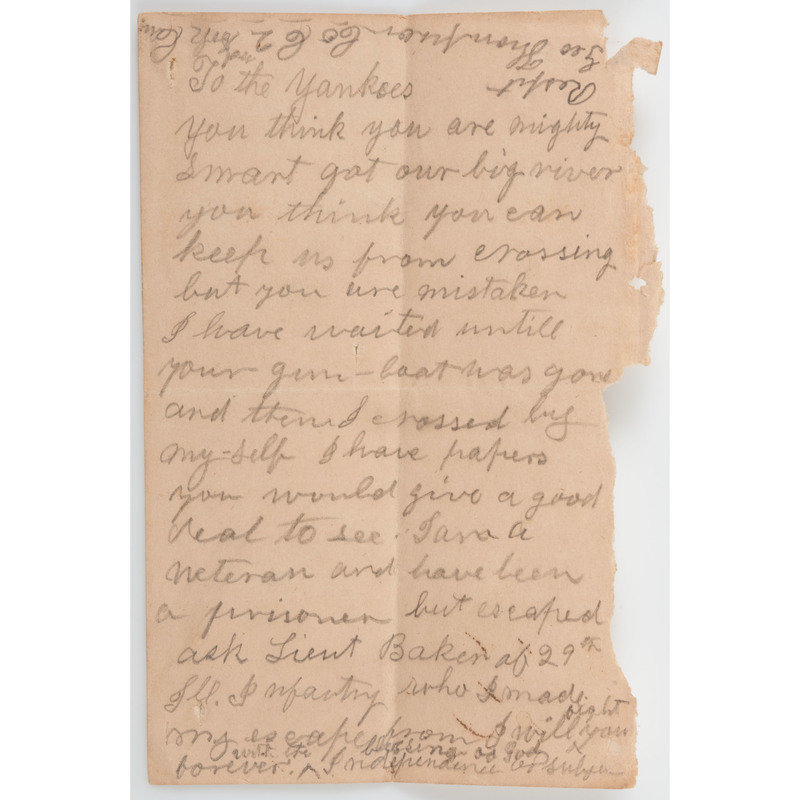 To the Yankees
you think you are mighty
smart got our big river
you think you can
keep us from crossing
but you are mistaken
I have waited untill
your gun-boat was gone
and then I crossed by
my-self I have papers
you would give a good
deal to see. I am a
veteran and have been
a prisoner but escaped
ask Lieut Baker of 29th
Ill. Infantry who I made
my escape from I will fight you
forever. with the blessing of God Independence or
Respt
Geo Thompson Co C 2